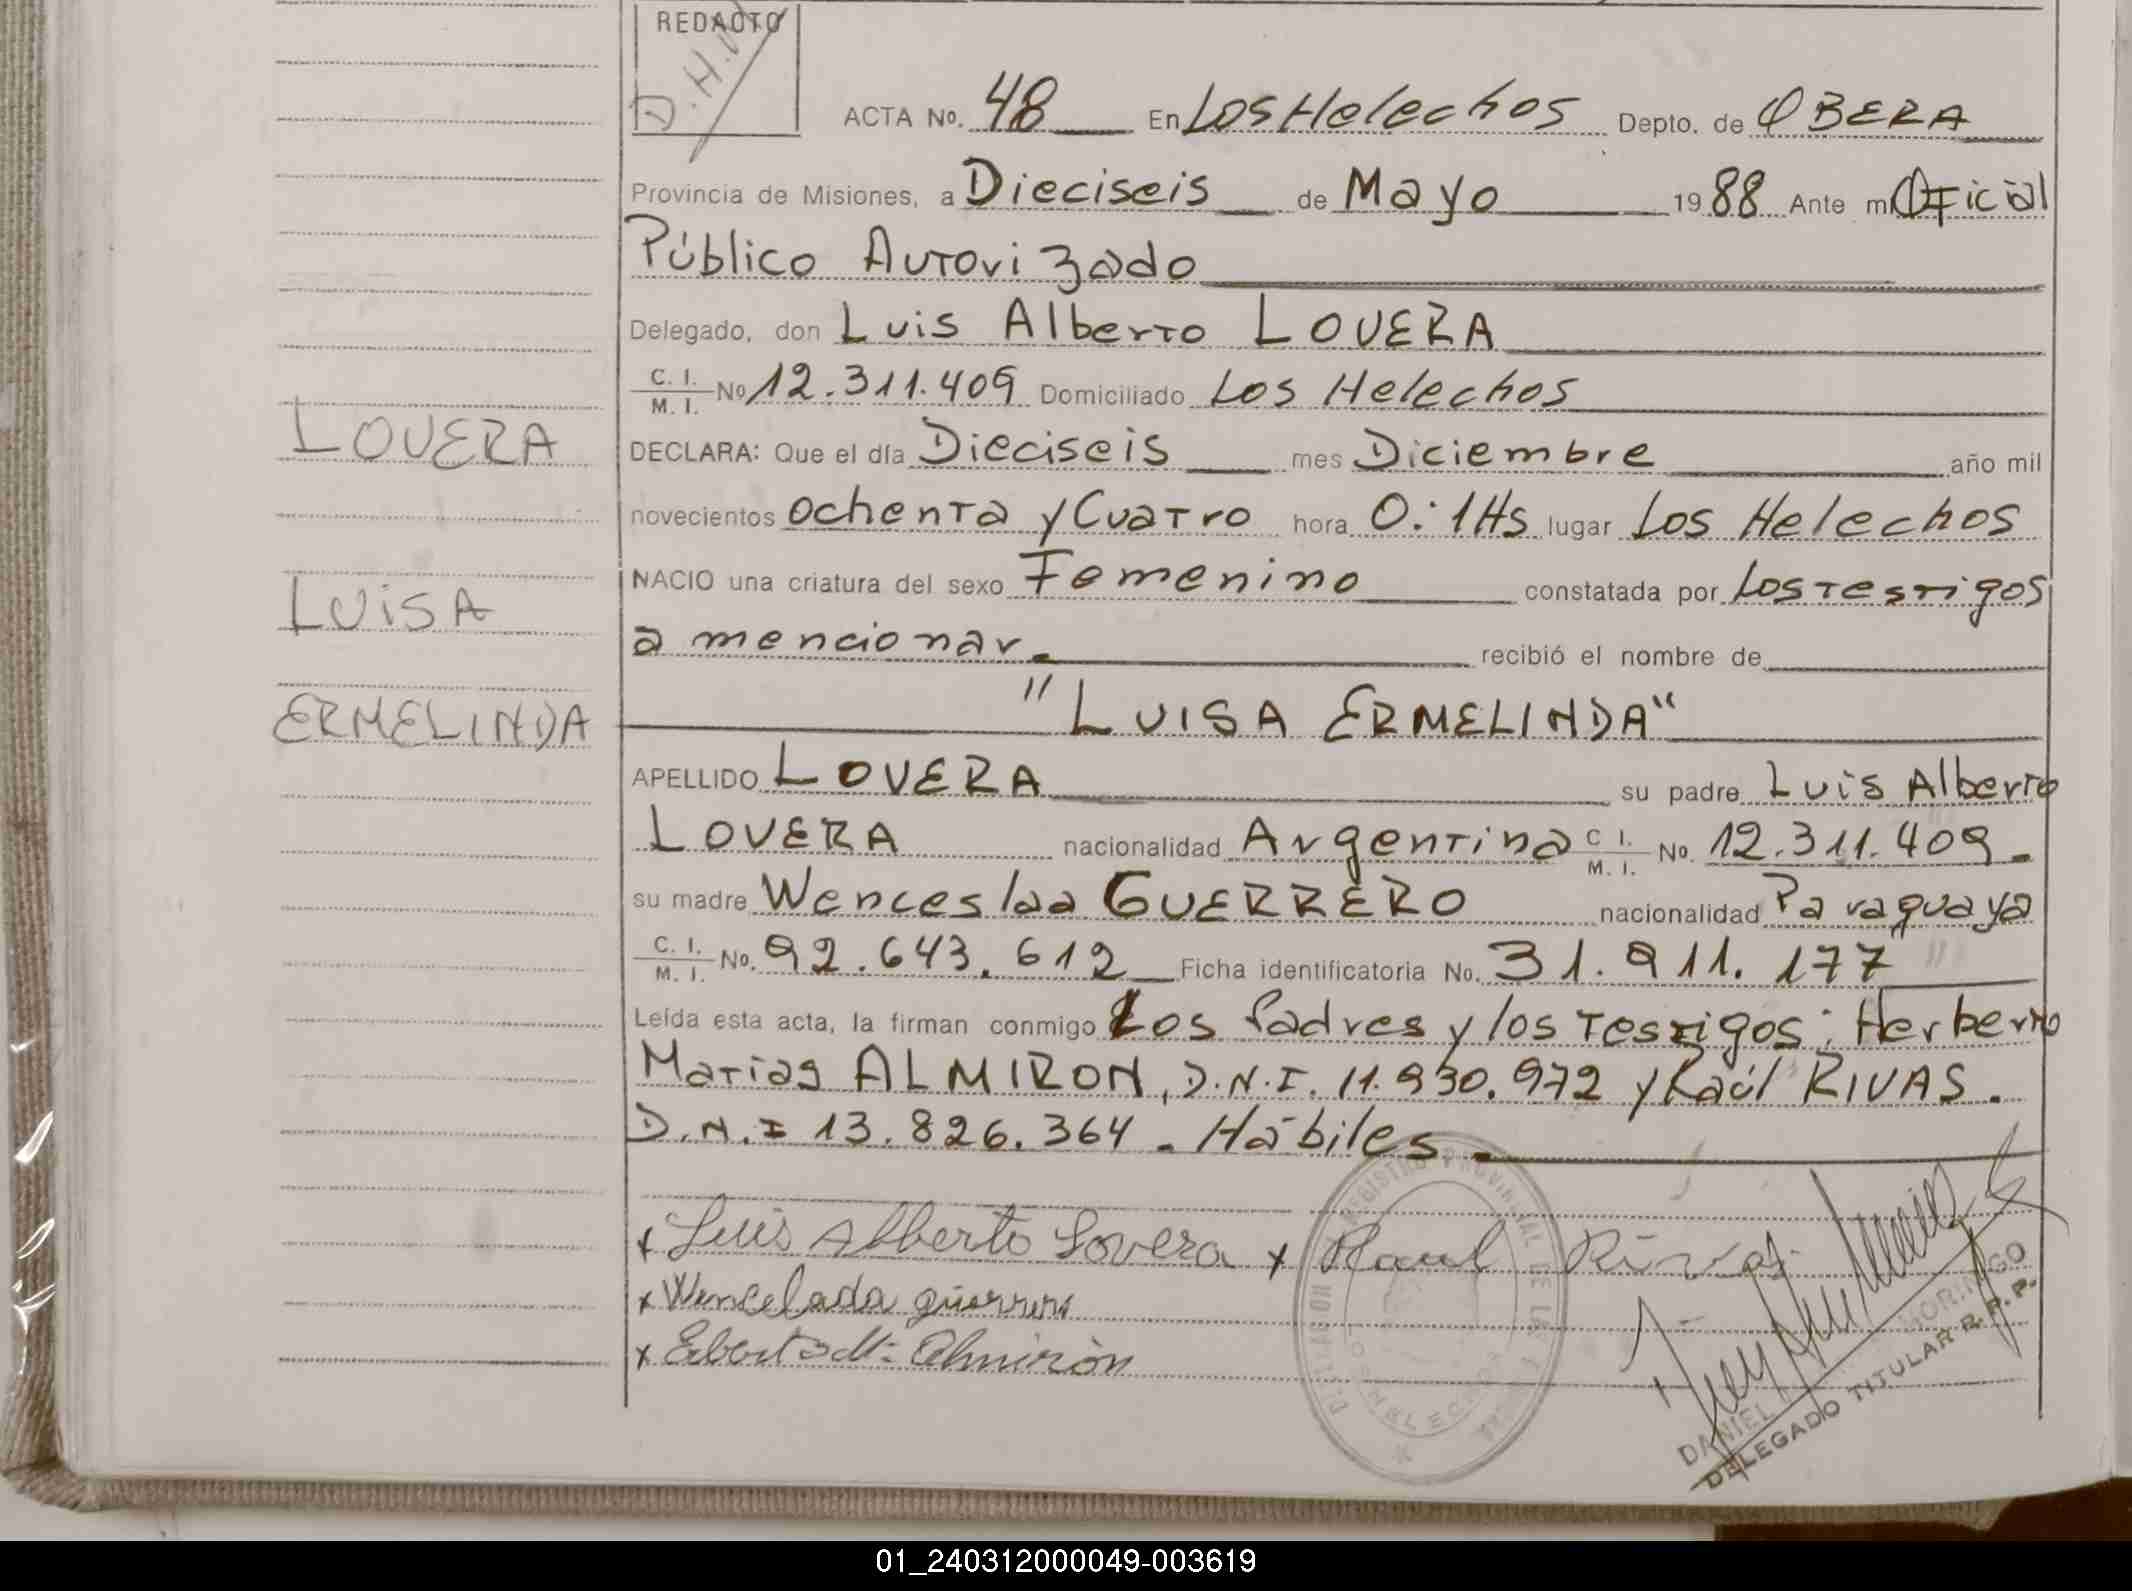 REDACTO
D.H.M
ACTA No. 48 En Los Helechos Depto. de OBERA
Provincia de Misiones, a Dieciseis de Mayo 1988 Ante mi Oficial
Público Autorizado
Delegado, don Luis Alberto LOVERA
C. I. M. I. No 12.311.409 Domiciliado Los Helechos
LOVERA
DECLARA: Que el día Dieciseis mes Diciembre año mil
novecientos ochenta y Cuatro hora 0:1Hs lugar Los Helechos
LUISA
NACIO una criatura del sexo Femenino constatada por Los testigos
a mencionar. recibió el nombre de
ERMELINDA
"LUISA ERMELINDA"
APELLIDO LOVERA su padre Luis Alberto
LOVERA nacionalidad Argentina C. I. M. I. No. 12.311.409.
su madre Wenceslaa GUERRERO nacionalidad Paraguaya
C. I. M. I. No. 92.643.612 Ficha identificatoria No. 31.911.177
Leída esta acta, la firman conmigo Los Padres y los Testigos: Herberto
Matias ALMIRON, D.N.I. 11.930.972 y Raúl RIVAS.
D.N.I 13.826.364. Hábiles.
x Luis Alberto Lovera x Raul Rivas
x Wencelada guerrero
x Eberto M. Almirón
REGISTRO PROVINCIAL DE LAS
DANIEL MORINIGO
DELEGADO TITULAR R. P. P.
01_240312000049-003619